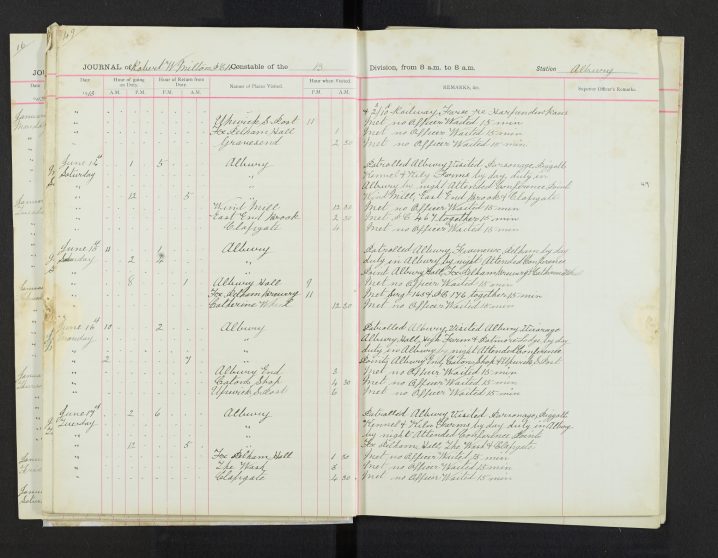 49
JOURNAL of Robert W Milton P.C. Constable of the 13 Division, from 8 a.m. to 8 a.m. Station Albury
Date Hour of going on Duty. Hour of Return from Duty Names of Places Visited. Hour when Visited. REMARKS, &c. Superior Officer's Remarks.
A.M. P.M. A.M. P.M. P.M. A.M.
Upwick S. Post 11 met no Officer Waited 15 min
Fox Pelham Hall 1 met no Officer Waited 15 min
Gravesend 2 30 met no Officer Waited 15 min
June 14th 1 5 Albury Patrolled Albury Visited Parsonage, Piggotts
Saturday Kennel & Kiln Farms by day, duty in
Albury by night Attended Conference Point
12 5 Wind Mill, East End Brook & Clapgate
Wind Mill 12 30 met no Officer Waited 15 min
East End Brook 2 30 met P.C. 467 together 15 min
Clapgate 4 met no Officer Waited 15 min
49
June 15th 11 1 Albury Patrolled Albury, Furneux Pelham by day
Sunday 2 duty in Albury by night Attended Conference
Point Albury Hall, Fox Pelham Brewery & Catherine Wheel
8 1 Albury Hall 9 met no Officer Waited 15 min
Fox Pelham Brewery 11 met Sergt P.C. 176 together 15 min
Catherine Wheel 12 30 met no Officer Waited 15 min
June 16th 10 2 Albury Patrolled Albury Visited Albury Vicarage
Monday Albury Hall, High Farm & Lodge by day
duty in Albury by night Attended Conference
2 7 Points Albury End, Catons Shop & Upwick S. Post
Albury End 3 met no Officer Waited 15 min
Catons Shop 4 30 met no Officer Waited 15 min
Upwick S. Post 6 met no Officer Waited 15 min
June 17th 2 6 Albury Patrolled Albury Visited Parsonage, Piggotts
Tuesday Kennel & Kiln Farms by day duty in Albury
by night Attended Conference Points
12 5 Fox Pelham Hall, The Wash & Clapgate
Fox Pelham Hall 1 30 met no Officer Waited 15 min
The Wash 3 met no Officer Waited 15 min
Clapgate 4 30 met no Officer Waited 15 min